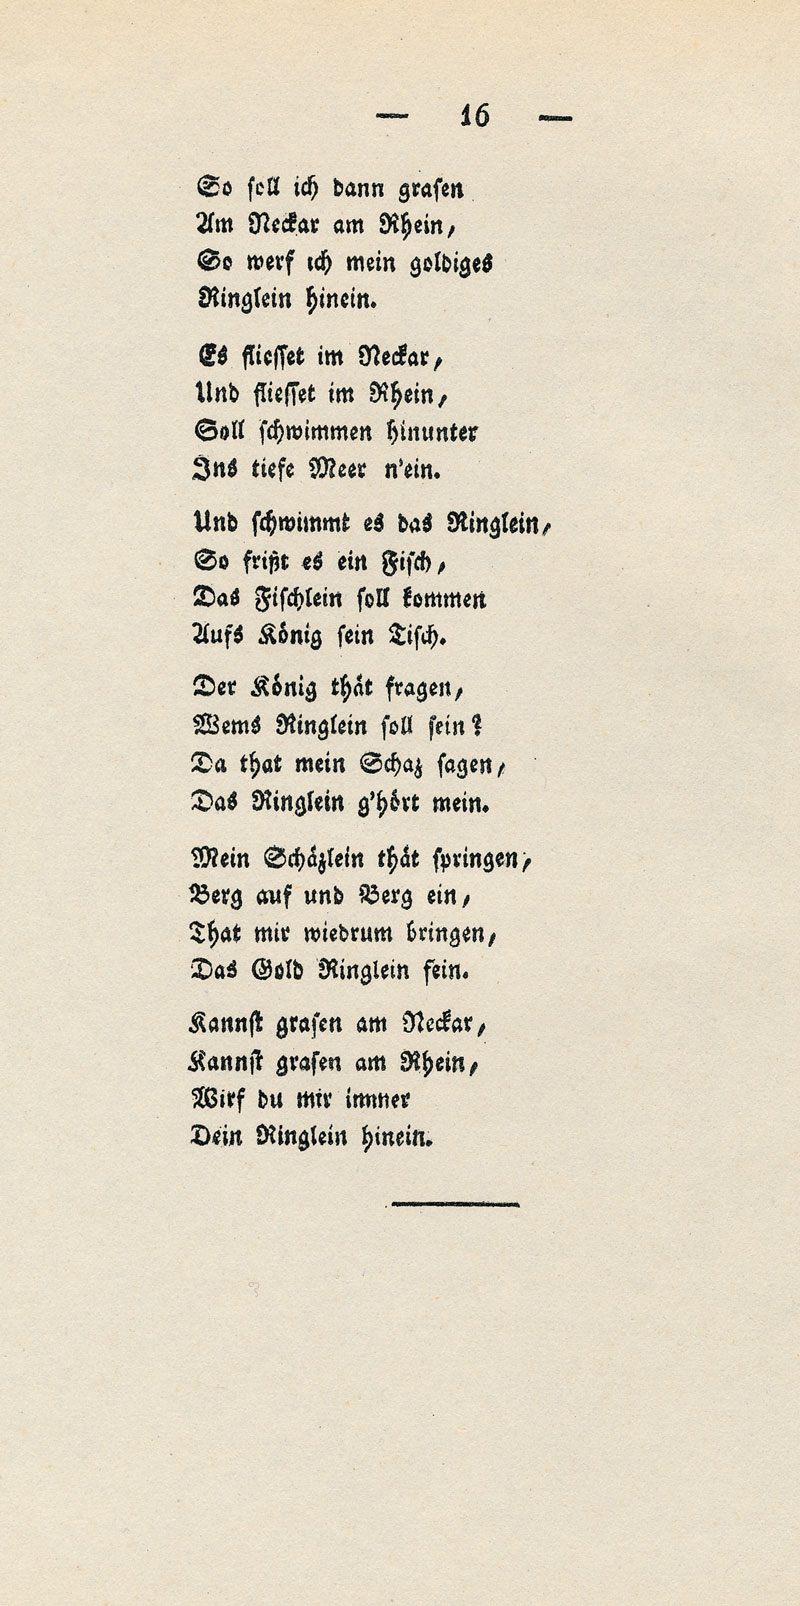 — 16 —
So soll ich dann grasen
Am Neckar am Rhein,
So werf ich mein goldiges
Ringlein hinein.
Es fliesset im Neckar,
Und fliesset im Rhein,
Soll schwimmen hinunter
Ins tiefe Meer n'ein.
Und schwimmt es das Ringlein,
So frißt es ein Fisch,
Das Fischlein soll kommen
Aufs König sein Tisch.
Der König thät fragen,
Wems Ringlein soll sein?
Da that mein Schaz sagen,
Das Ringlein g'hört mein.
Mein Schäzlein thät springen,
Berg auf und Berg ein,
That mir wiedrum bringen,
Das Gold Ringlein fein.
Kannst grasen am Neckar,
Kannst grasen am Rhein,
Wirf du mir immer
Dein Ringlein hinein.